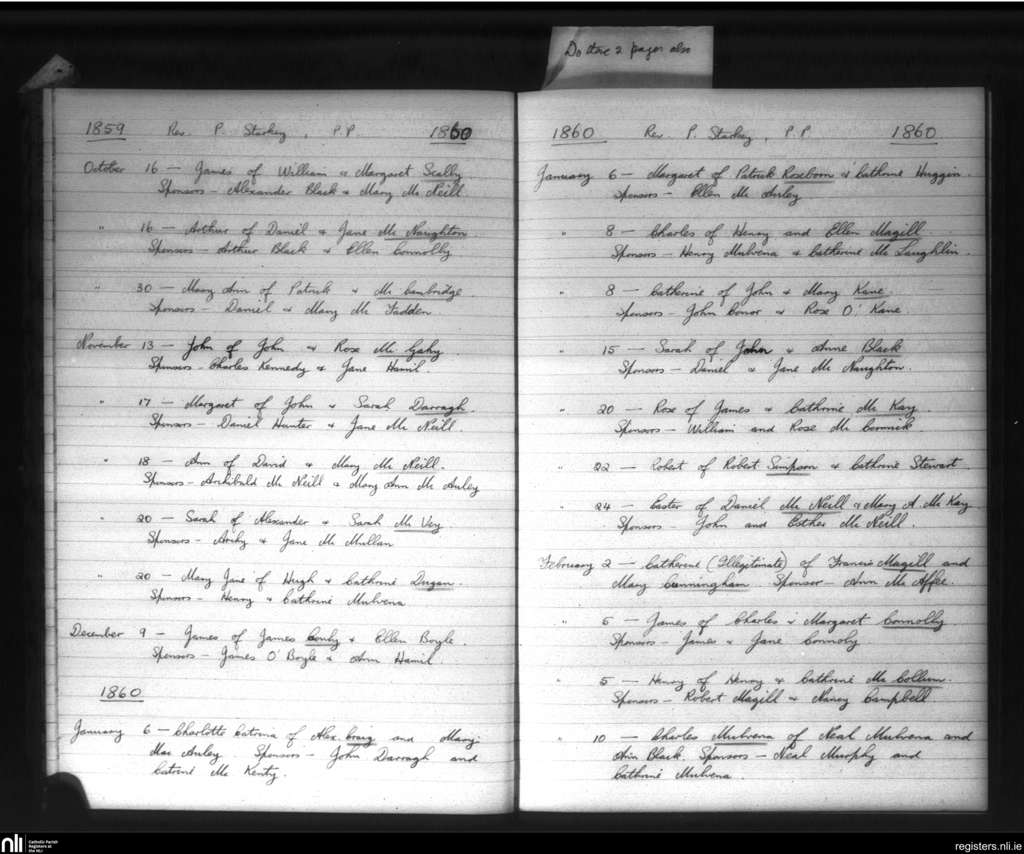 Do these 2 pages also
1859 Rev. P. Starkey, P.P. 1860
October 16 — James of William & Margaret Scally
Sponsors — Alexander Black & Mary Mc Neill.
" 16 — Arthur of Daniel & Jane Mc Naughton
Sponsors — Arthur Black & Ellen Connolly
" 30 — Mary Ann of Patrick & Mc Cambridge
Sponsors — Daniel & Mary Mc Fadden
November 13 — John of John & Rose Mc Gahy
Sponsors — Charles Kennedy & Jane Hamil.
" 17 — Margaret of John & Sarah Darragh.
Sponsors — Daniel Hunter & Jane Mc Neill
" 18 — Ann of David & Mary Mc Neill.
Sponsors — Archibald Mc Neill & Mary Ann Mc Auley
" 20 — Sarah of Alexander & Sarah Mc Vey
Sponsors — Archy & Jane Mc Mullan
" 20 — Mary Jane of Hugh & Cathrine Dugan.
Sponsors — Henry & Cathrine Mulvena
December 9 — James of James & Ellen Boyle.
Sponsors — James O'Boyle & Ann Hamil.
1860
January 6 — Charlotte Catrina of Alex. Craig and Mary
Mac Auley Sponsors — John Darragh and
Catrine Mc Kenty.
1860 Rev. P. Starkey, P.P 1860
January 6 — Margaret of Patrick Roseborn & Cathrine Huggin.
Sponsors — Ellen Mc Auley
" 8 — Charles of Henry and Ellen Magill
Sponsors — Henry Mulvena & Catherine Mc Laughlin.
" 8 — Catherine of John & Mary Kane.
Sponsors — John Conor & Rose O'Kane.
" 15 — Sarah of John & Anne Black
Sponsors — Daniel & Jane Mc Naughton.
" 20 — Rose of James & Cathrine Mc Kay
Sponsors — William and Rose Mc Cormick
" 22 — Robert of Robert Simpson & Cathrine Stewart
" 24 — Easter of Daniel Mc Neill & Mary A. Mc Kay
Sponsors — John and Esther Mc Neill.
February 2 — Catherine (Illegitimate) of Francis Magill and
Mary Cunningham. Sponsor — Ann Mc Affee.
" 5 — James of Charles & Margaret Connolly
Sponsors — James & Jane Connoly
" 5 — Henry of Henry & Cathrine Mc Collum.
Sponsors — Robert Magill & Nancy Campbell
" 10 — Charles Mulvena of Neal Mulvena and
Ann Black. Sponsors — Neal Murphy and
Cathrine Mulvena.
nli
Catholic Parish
Registers at
the NLI
registers.nli.ie